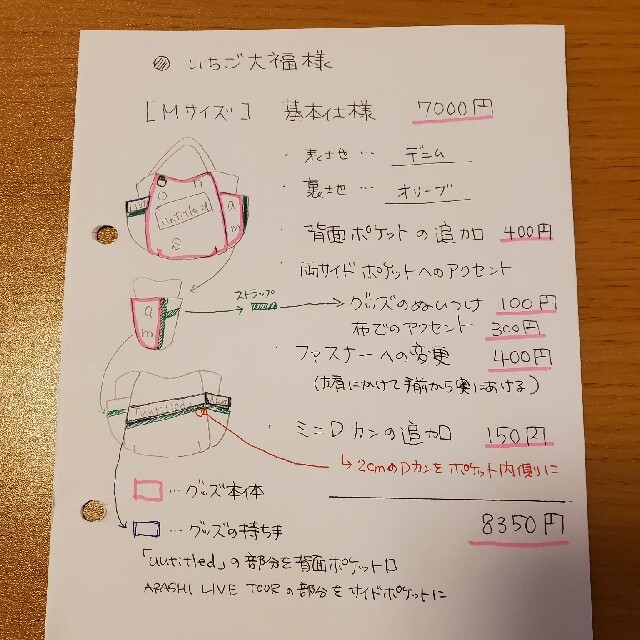 いちご大福様
[Mサイズ] 基本仕様 7000円
・表生地 … デニム
・裏生地 … オリーブ
・背面ポケットの追加 400円
・両サイドポケットへのアクセント
ストラップ
グッズのぬいつけ 100円
布でのアクセント 300円
・ファスナーへの変更 400円
(左肩にかけて手前から奥にあける)
・ミニDカンの追加 150円
↳ 2cmのDカンをポケット内側に
8350円
… グッズ本体
… グッズの持ち手
「untitled」の部分を背面ポケット口
ARASHI LIVE TOURの部分をサイドポケットに
untitled
a
m
a
m
untitled